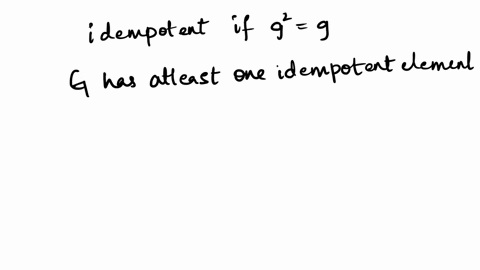 idempotent if g² = g
G has atleast one idempotent element